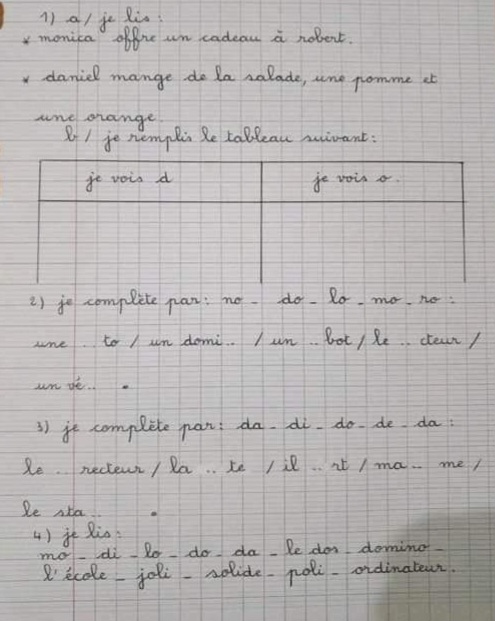 1) a/ je lis:
* monica offre un cadeau à robert.
* daniel mange de la salade, une pomme et
une orange.
b/ je remplis le tableau suivant:
je vois d
je vois o.
2) je complète par: no - do - lo - mo - ro :
une .. to / un domi .. / un .. bot / le .. cteur /
un vé .. .
3) je complète par: da - di - do - de - da :
le .. recteur / la .. te / il .. rt / ma .. me /
le sta .. .
4) je lis:
mo - di - lo - do - da - le dos - domino -
l'école - joli - solide - poli - ordinateur.